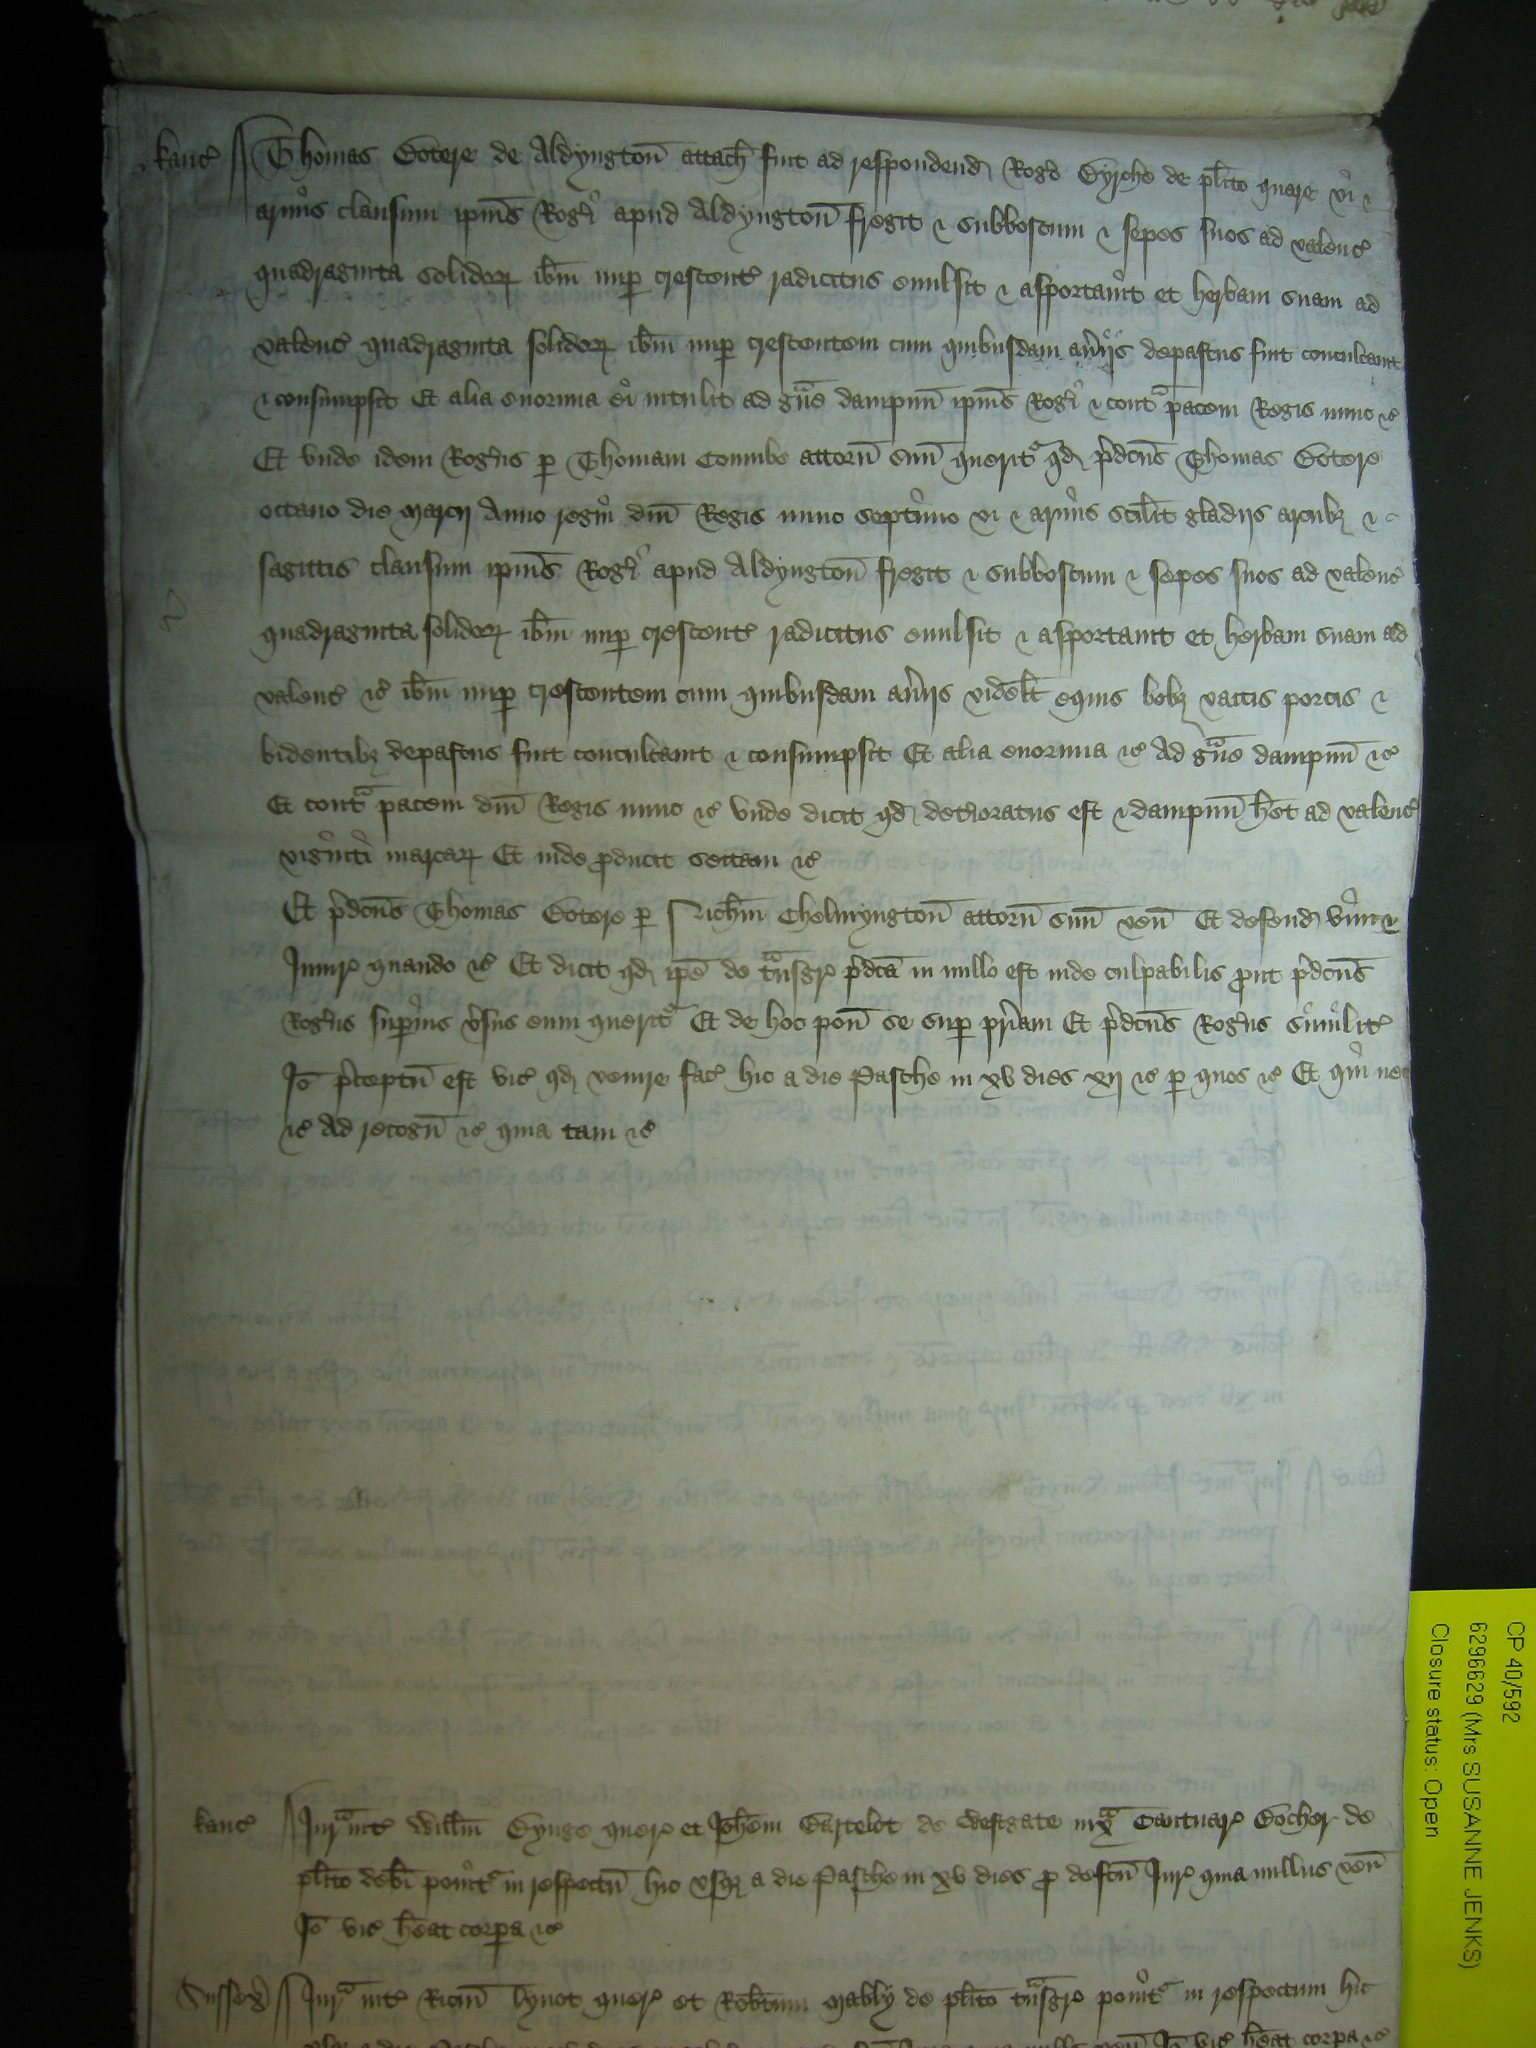 kanc̄ Thomas Gotere de Aldyngton̄ attach̄ fuit ad respondend̄ Rog̃o Byrche de pl̄ito quare vi &
armis clausum ip̄ius Rog̃i apud Aldyngton̄ fregit & subboscum & sepes suos ad valenc̄
quadraginta solidoꝝ ib̄m nup̱ crescent̄ radicitus euulsit & asportauit et herbam suam ad
valenc̄ quadraginta solidoꝝ ib̄m nup̱ crescentem cum quibusdam aũiis depastus fuit conculcauit
& consumpsit Et alia enormia ei intulit ad gͣue dampnū ip̄ius Rog̃i & contͣ pacem Regis nunc &c̄
Et vnde idem Rog̃us p̱ Thomam Combe attorñ suū querit̃ qd̄ p̄dc̄us Thomas Gotere
octauo die Marcij Anno regni dn̄i Regis nunc septimo vi & armis scil̄t gladijs arcubꝫ &
sagittis clausum ip̄ius Rog̃i apud Aldyngton̄ fregit & subboscum & sepes suos ad valenc̄
quadraginta solidoꝝ ib̄m nup̱ crescent̄ radicitus euulsit & asportauit et herbam suam ad
valenc̄ &c̄ ib̄m nup̱ crescentem cum quibusdam aũiis videl̄t equis bobꝫ vaccis porcis &
bidentibꝫ depastus fuit conculcauit & consumpsit Et alia enormia &c̄ Ad gͣue dampnū &c̄
Et contͣ pacem dn̄i Regis nunc &c̄ vnde dicit qd̄ det̃ioratus est & dampnū h̄et ad valenc̄
viginti marcaꝝ Et inde ꝓducit sectam &c̄
Et p̄dc̄us Thomas Gotere p̱ Nich̄m Chelmyngton̄ attorñ suū veñ Et defend̄ vim &
Iniur̄ quando &c̄ Et dicit qd̄ ip̄e de tͣnsgr̄ p̄dc̄a in nullo est inde culpabilis ꝓut p̄dc̄us
Rog̃us sup̱ius ṽsus eum querit̃ Et de hoc poñ se sup̱ pr̄iam Et p̄dc̄us Rog̃us similit̃
Iō p̄ceptū est vic̄ qd̄ venire fac̄ hic a die Pasche in xv dies xij &c̄ p̱ quos &c̄ Et qui nec
&c̄ Ad recogñ &c̄ quia tam &c̄
kanc̄ Iurͣ int̃ Will̄m Bynge quer̄ et Ioh̄em Bartelot de Westgate iuxͣ Cantuar̄ Bocher de
pl̄ito debi ponit̃ in respectū hic vsqꝫ a die Pasche in xv dies ꝓ defc̄u Iur̄ quia nullus veñ
Iō vic̄ h̄eat corpa &c̄
Iurͣ int̃ Ricm̄ lynot quer̄ et Rob̄tum Mably de pl̄ito tͣnsgr̄ ponit̃ in respectum hic
CP 40/592
6296629 (Mrs SUSANNE JENKS)
Closure status: Open